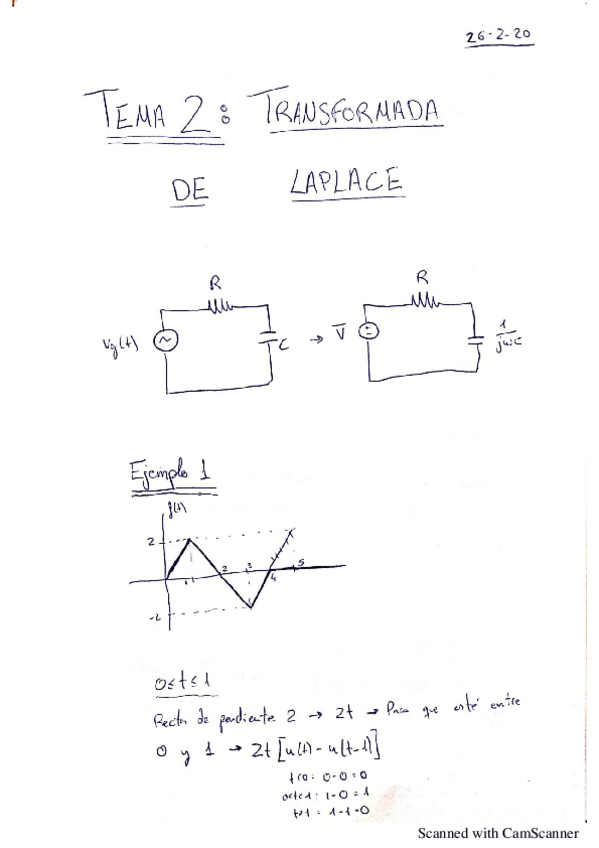 26-2-20
TEMA 2: TRANSFORMADA
DE LAPLACE
R
R
Vg(t)
C
→
V̅
1/jωC
Ejemplo 1
f(t)
2
1
2
3
4
5
-2
0≤t≤1
Recta de pendiente 2 → 2t → Para que esté entre
0 y 1 → 2t [u(t) - u(t-1)]
t<0: 0-0=0
0<t<1: 1-0=1
t>1: 1-1=0
Scanned with CamScanner